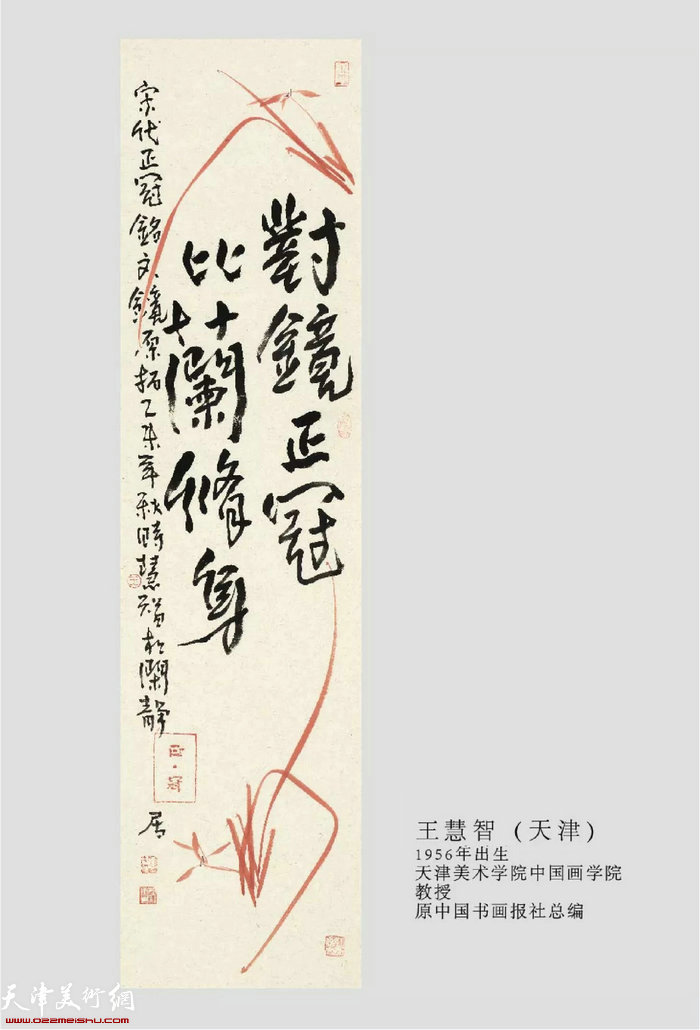 對鏡正冠
比蘭脩身
宋代正冠銘文鏡原拓乙未年秋時慧智於蘭靜
居
正·冠
王慧智（天津）
1956年出生
天津美术学院中国画学院
教授
原中国书画报社总编
天津美術網
www.022meishu.com